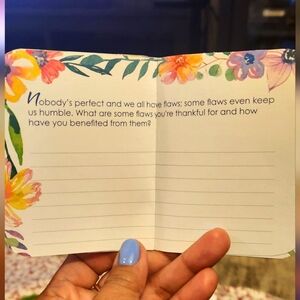 Nobody's perfect and we all have flaws; some flaws even keep
us humble. What are some flaws you're thankful for and how
have you benefited from them?